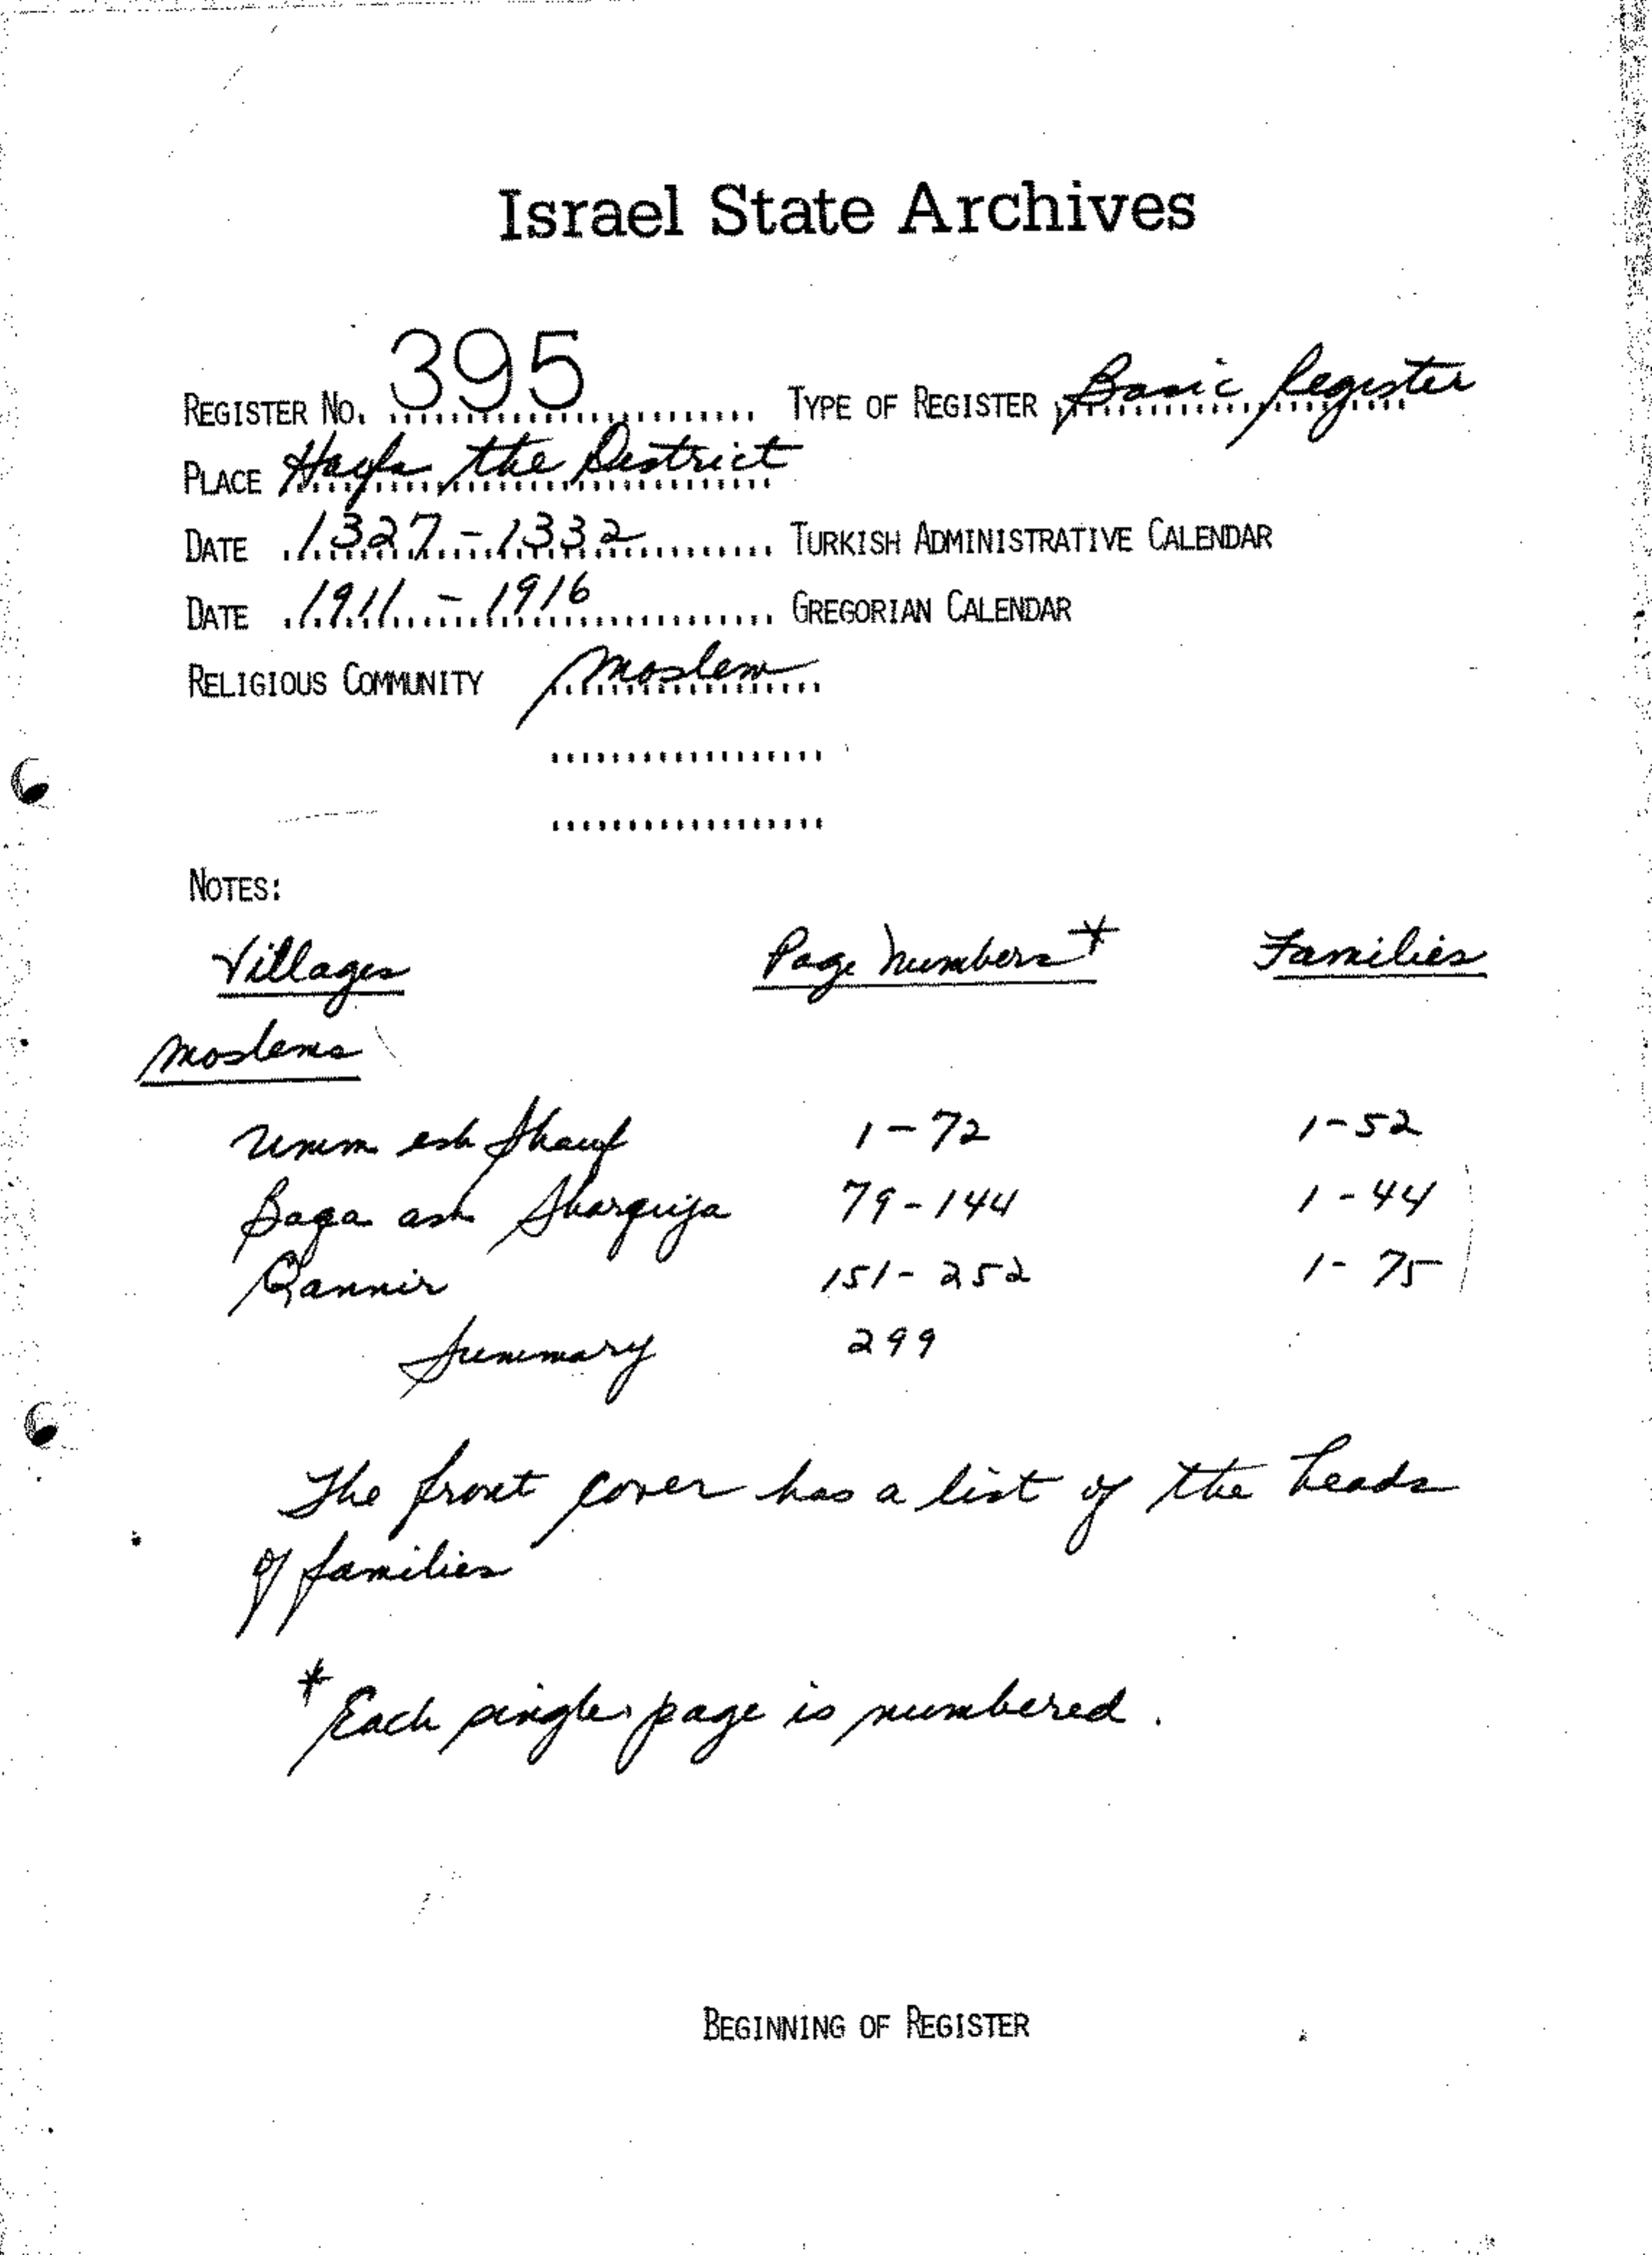 Israel State Archives
REGISTER NO. 395 TYPE OF REGISTER Basic Register
PLACE Hayfa the District
DATE 1327-1332 TURKISH ADMINISTRATIVE CALENDAR
DATE 1911 - 1916 GREGORIAN CALENDAR
RELIGIOUS COMMUNITY Moslem
NOTES:
Villages Page Numbers* Families
Moslems
Umm esh Shauf 1-72 1-52
Baqa ash Sharquija 79-144 1-44
Qannir 151-252 1-75
Summary 299
The front cover has a list of the heads
of families
* Each single page is numbered.
BEGINNING OF REGISTER